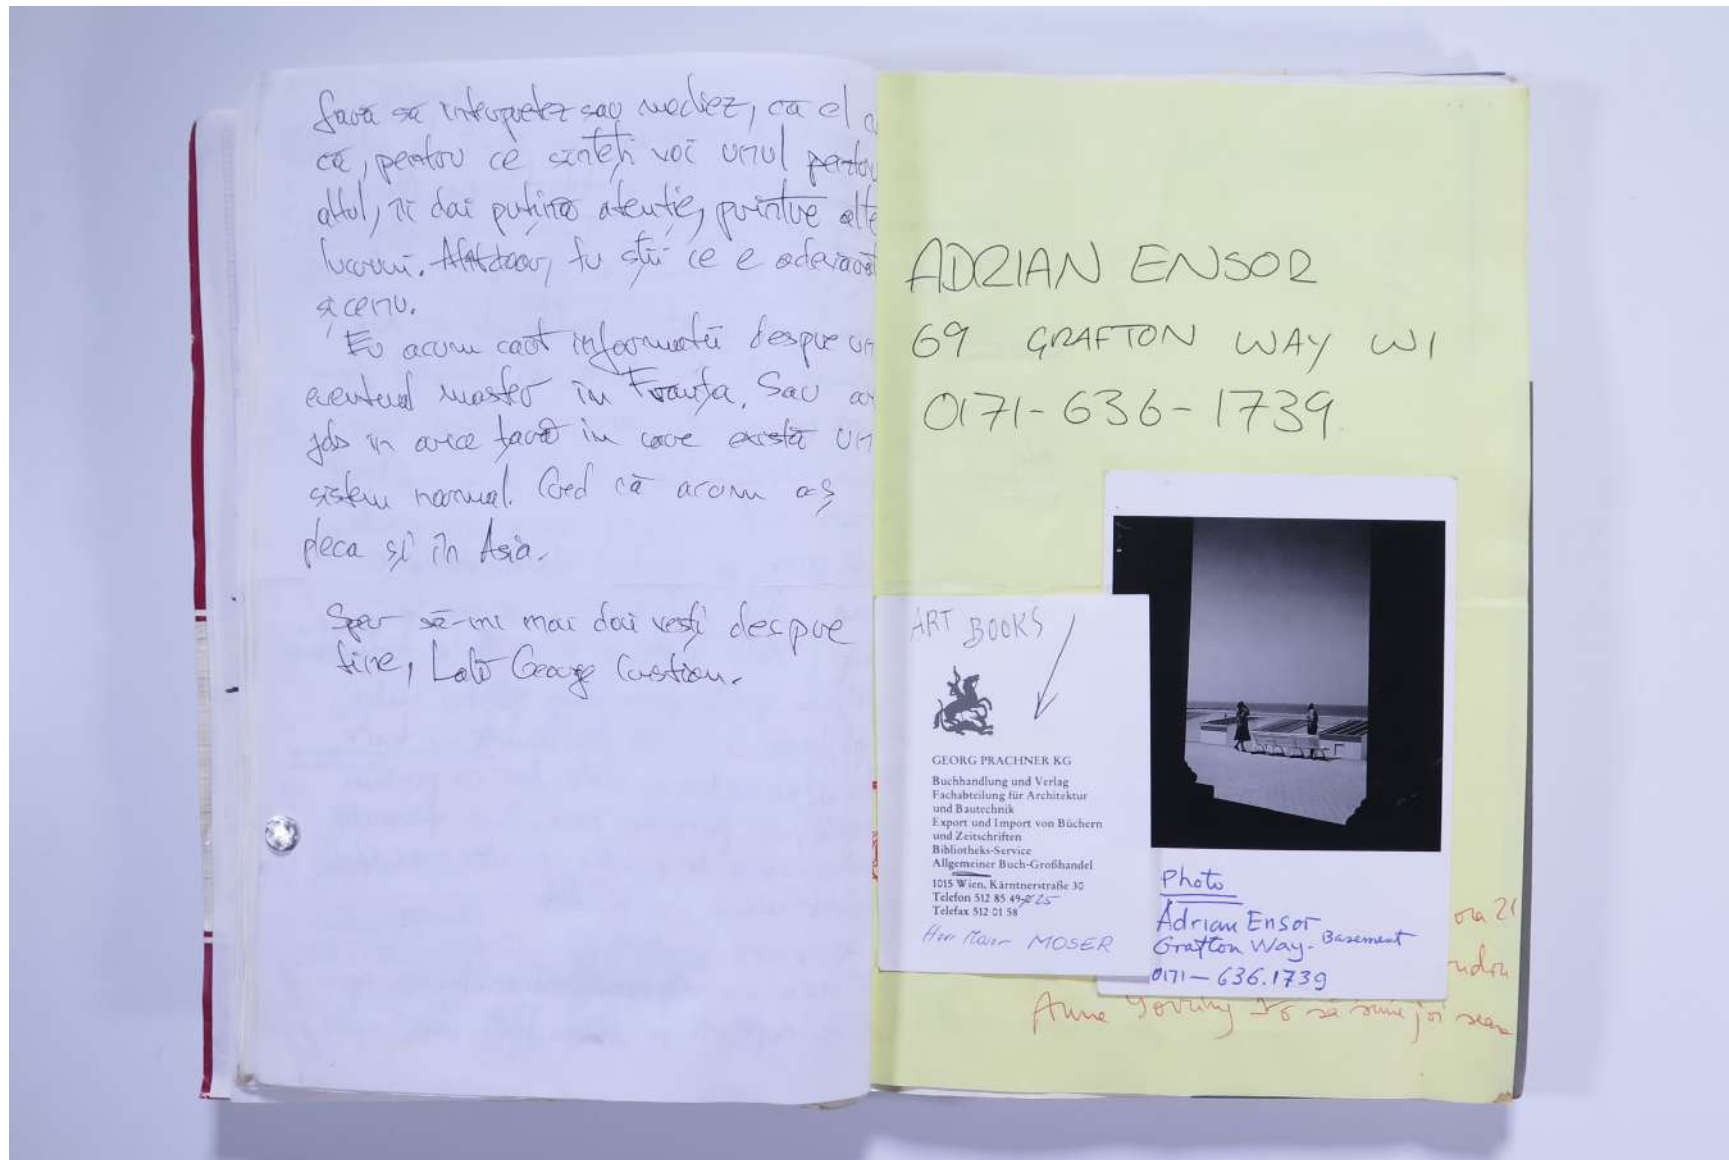 fară să interpretez sau mediez, că el
că, pentru ce sînteți voi unul pentru
altul, îi dai puțină atenție, printre alte
lucruri. tu știi ce e adevărat
și ce nu.
Eu acum caut informații despre un
eventual master în Franța. Sau
job în orice țară în care există un
sistem normal. Cred că acum aș
pleca și în Asia.
Sper să-mi mai dai vești despre
tine, George Cristian.
ADRIAN ENSOR
69 GRAFTON WAY W1
0171-636-1739
ART BOOKS
GEORG PRACHNER KG
Buchhandlung und Verlag
Fachabteilung für Architektur
und Bautechnik
Export und Import von Büchern
und Zeitschriften
Bibliotheks-Service
Allgemeiner Buch-Großhandel
1015 Wien, Kärntnerstraße 30
Telefon 512 85 49-25
Telefax 512 01 58
Herr MOSER
Photo
Adrian Ensor
Grafton Way - Basement
0171-636.1739
ora 21
Anne să sune joi seara